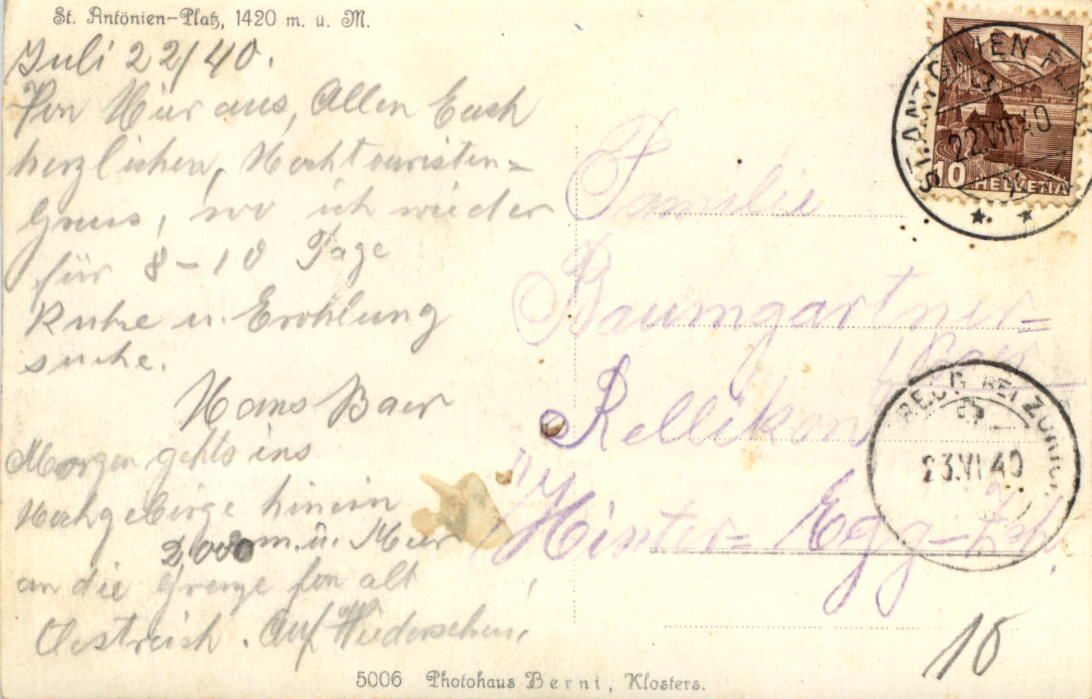 St. Antönien-Platz, 1420 m. ü. M.
Juli 22/40.
Von Hier aus, Allen Euch
herzlichen, Hochtouristen-
Gruss, wo ich wieder
für 8-10 Tage
Ruhe u. Erohlung
suche.
Hans Baer
Morgen gehts ins
Hochgebirge hinein
2000 m. ü. Meer
an die Grenze fon alt
Oestreich. Auf Wiedersehen,
Familie
Baumgartner-
Baer
Rellikon
Hinter-Egg-Zch.
ST. ANTÖNIEN
22.VII.40
10 HELVETIA
BEI ZÜRICH
23.VII.40
10
5006 Photohaus Berni, Klosters.